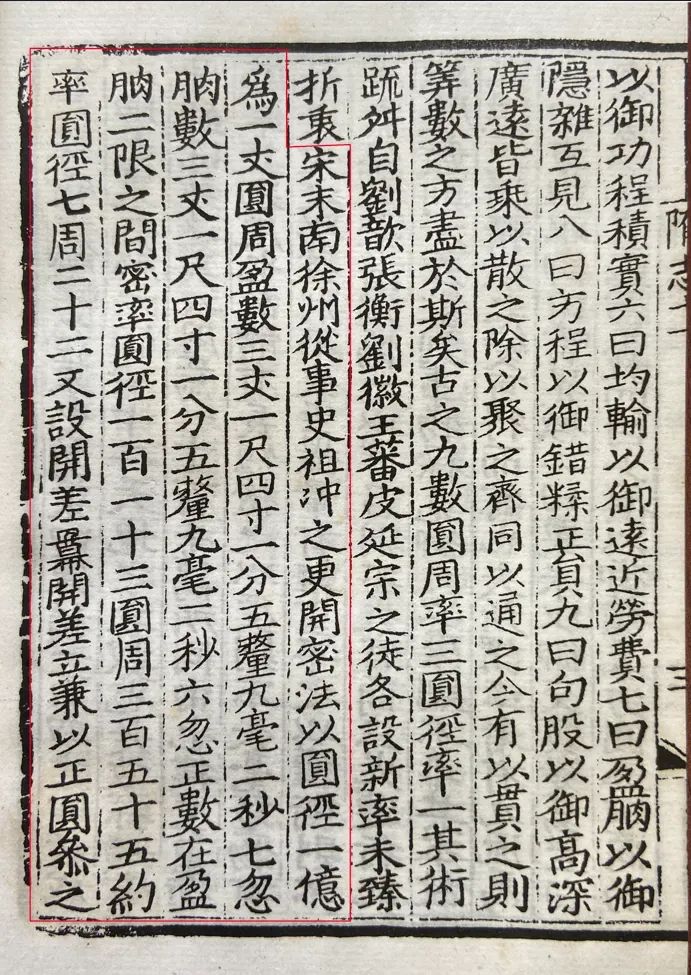 隋志十一
三
以御功程積實六曰均輸以御遠近勞費七曰盈朒以御
隱雜互見八曰方程以御錯糅正負九曰句股以御高深
廣遠皆乘以散之除以聚之齊同以通之今有以貫之則
筭數之方盡於斯矣古之九數圓周率三圓徑率一其術
疏舛自劉歆張衡劉徽王蕃皮延宗之徒各設新率未臻
折衷宋末南徐州從事史祖沖之更開密法以圓徑一億
爲一丈圓周盈數三丈一尺四寸一分五釐九毫二秒七忽
朒數三丈一尺四寸一分五釐九毫二秒六忽正數在盈
朒二限之間密率圓徑一百一十三圓周三百五十五約
率圓徑七周二十二又設開差冪開差立兼以正圓叅之